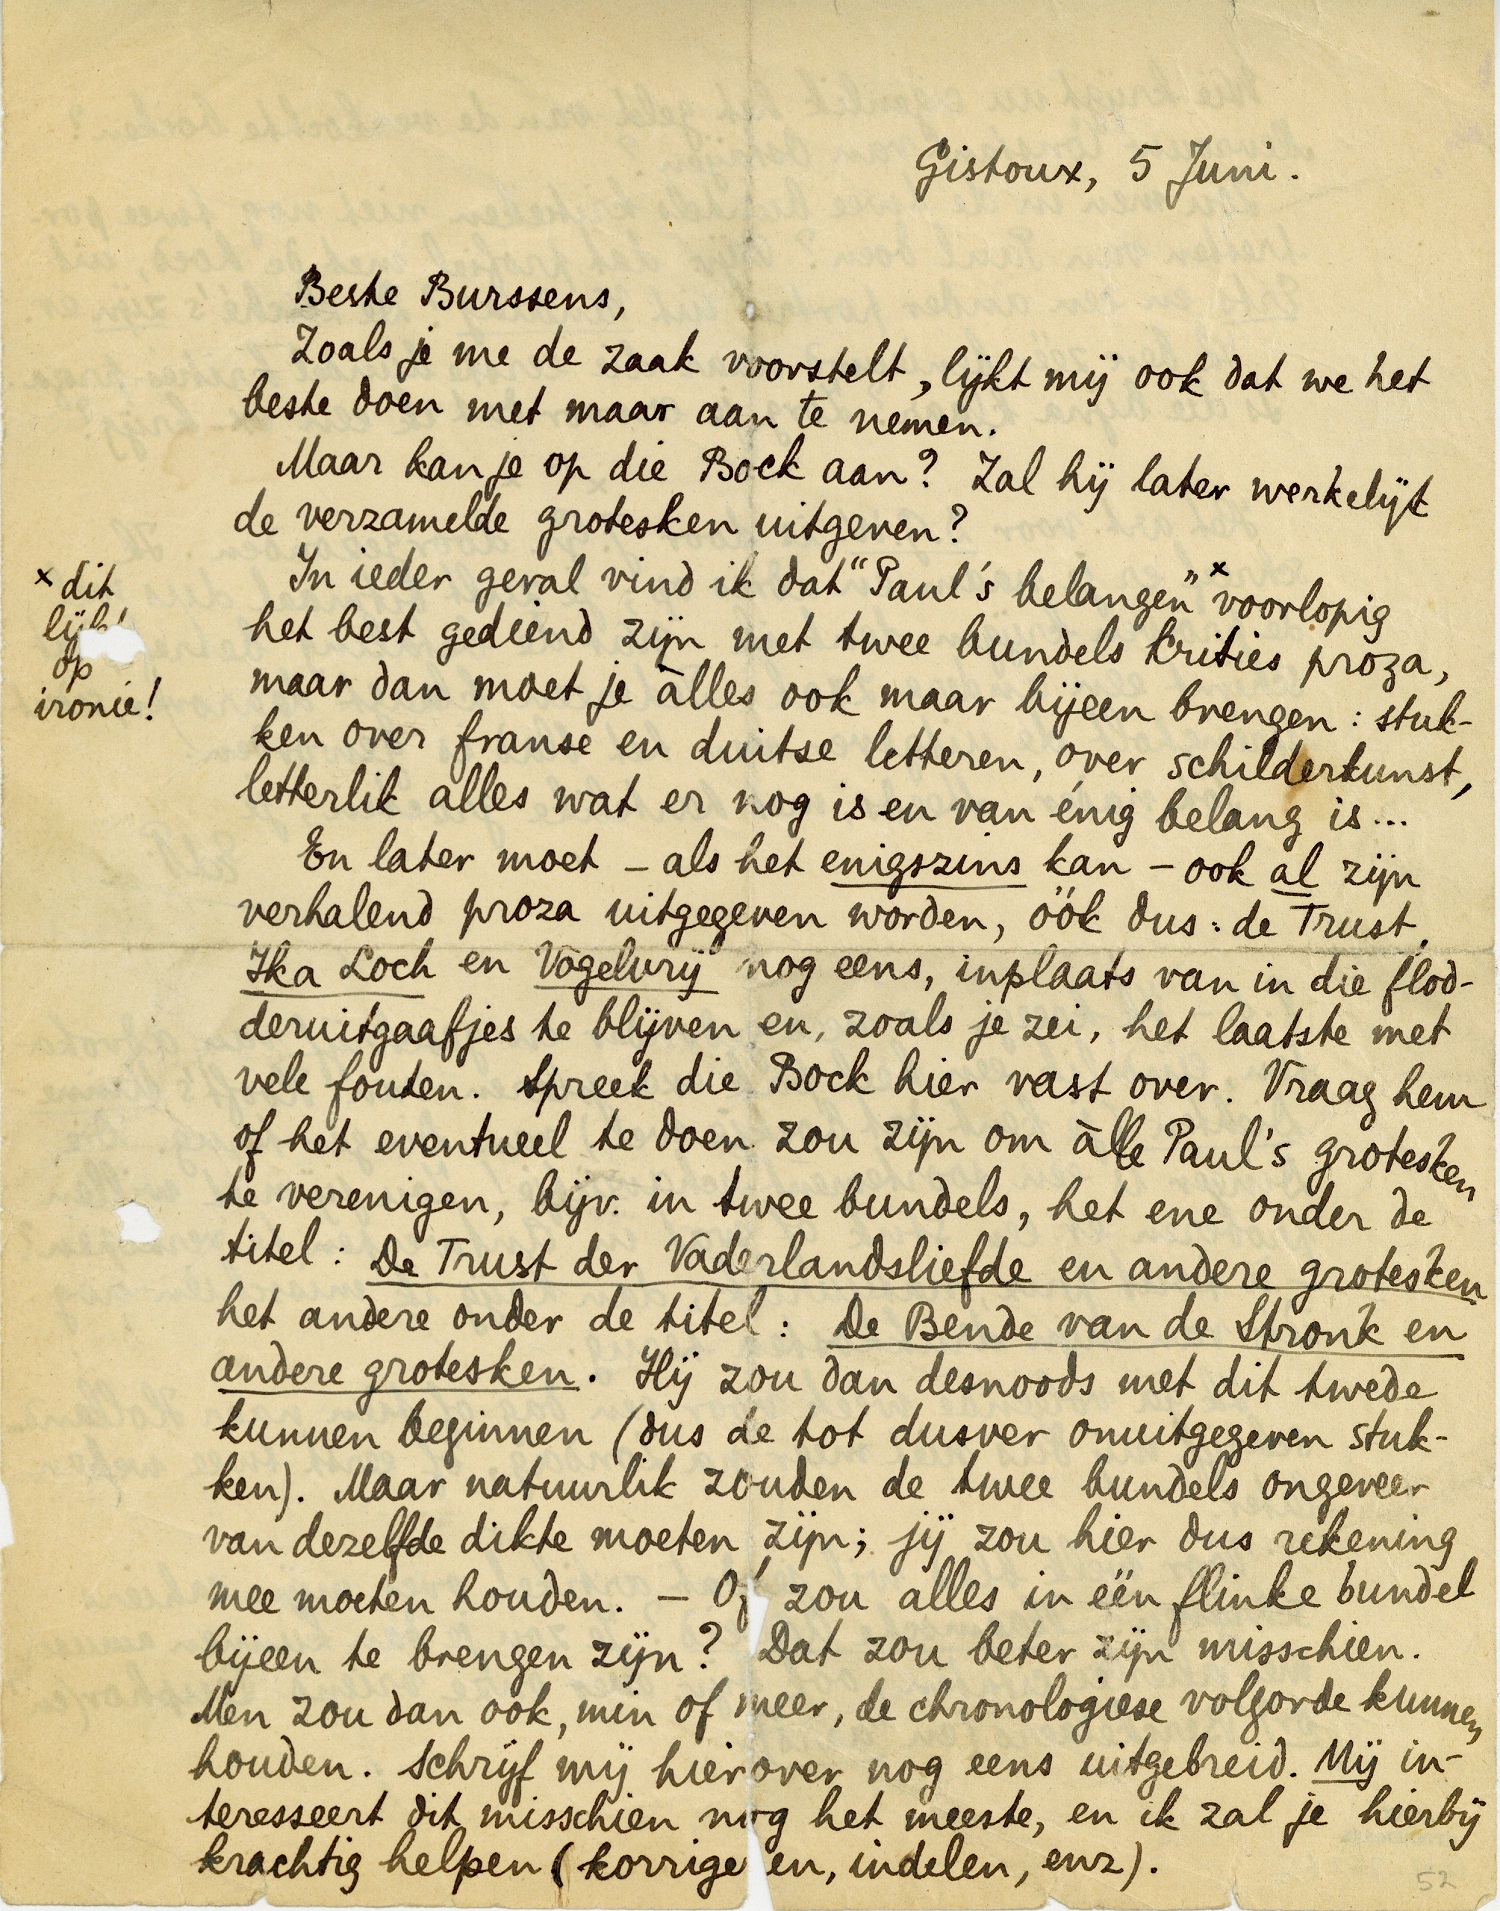 Gistoux, 5 Juni.
Beste Burssens,
Zoals je me de zaak voorstelt, lijkt mij ook dat we het
beste doen met maar aan te nemen.
Maar kan je op die Bock aan? Zal hij later werkelijk
de verzamelde grotesken uitgeven?
In ieder geval vind ik dat "Paul's belangen" x voorlopig
het best gediend zijn met twee bundels krities proza,
maar dan moet je àlles ook maar bijeen brengen: stuk-
ken over franse en duitse letteren, over schilderkunst,
letterlik alles wat er nog is en van énig belang is...
En later moet – als het enigszins kan – ook al zijn
verhalend proza uitgegeven worden, óók dus: de Trust,
Ika Loch en Vogelvrij nog eens, inplaats van in die flod-
deruitgaafjes te blijven en, zoals je zei, het laatste met
vele fouten. Spreek die Bock hier vast over. Vraag hem
of het eventueel te doen zou zijn om àlle Paul's grotesken
te verenigen, bijv. in twee bundels, het ene onder de
titel: De Trust der Vaderlandsliefde en andere grotesken
het andere onder de titel: De Bende van de Stronk en
andere grotesken. Hij zou dan desnoods met dit twede
kunnen beginnen (dus de tot dusver onuitgegeven stuk-
ken). Maar natuurlik zouden de twee bundels ongeveer
van dezelfde dikte moeten zijn; jij zou hier dus rekening
mee moeten houden. – Of zou alles in één flinke bundel
bijeen te brengen zijn? Dat zou beter zijn misschien.
Men zou dan ook, min of meer, de chronologiese volgorde kunnen
houden. Schrijf mij hierover nog eens uitgebreid. Mij in-
teresseert dit misschien nog het meeste, en ik zal je hierbij
krachtig helpen (korrige en, indelen, enz).
x dit
lijkt
op
ironie!
52